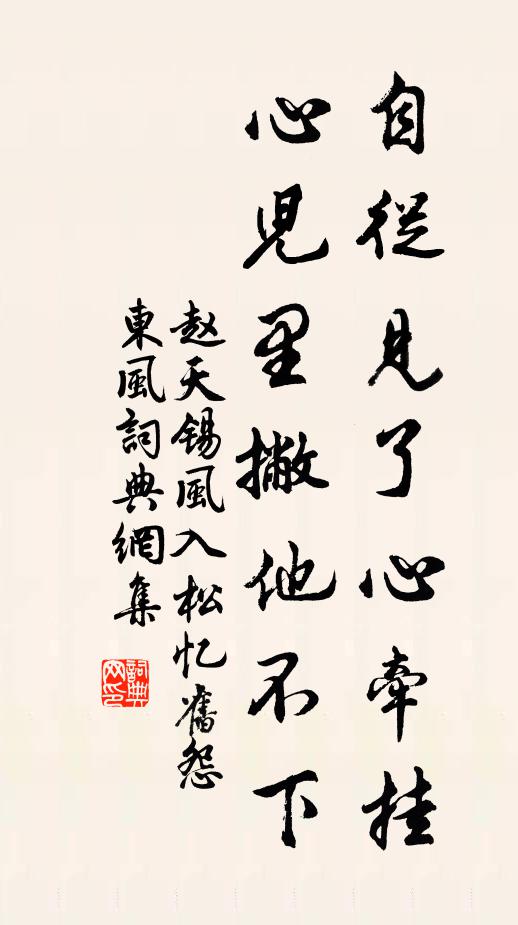 自從見了心牽挂
心児里撇他不下
赵天錫風入松忆舊怨
東風詞典網集
詞典网印